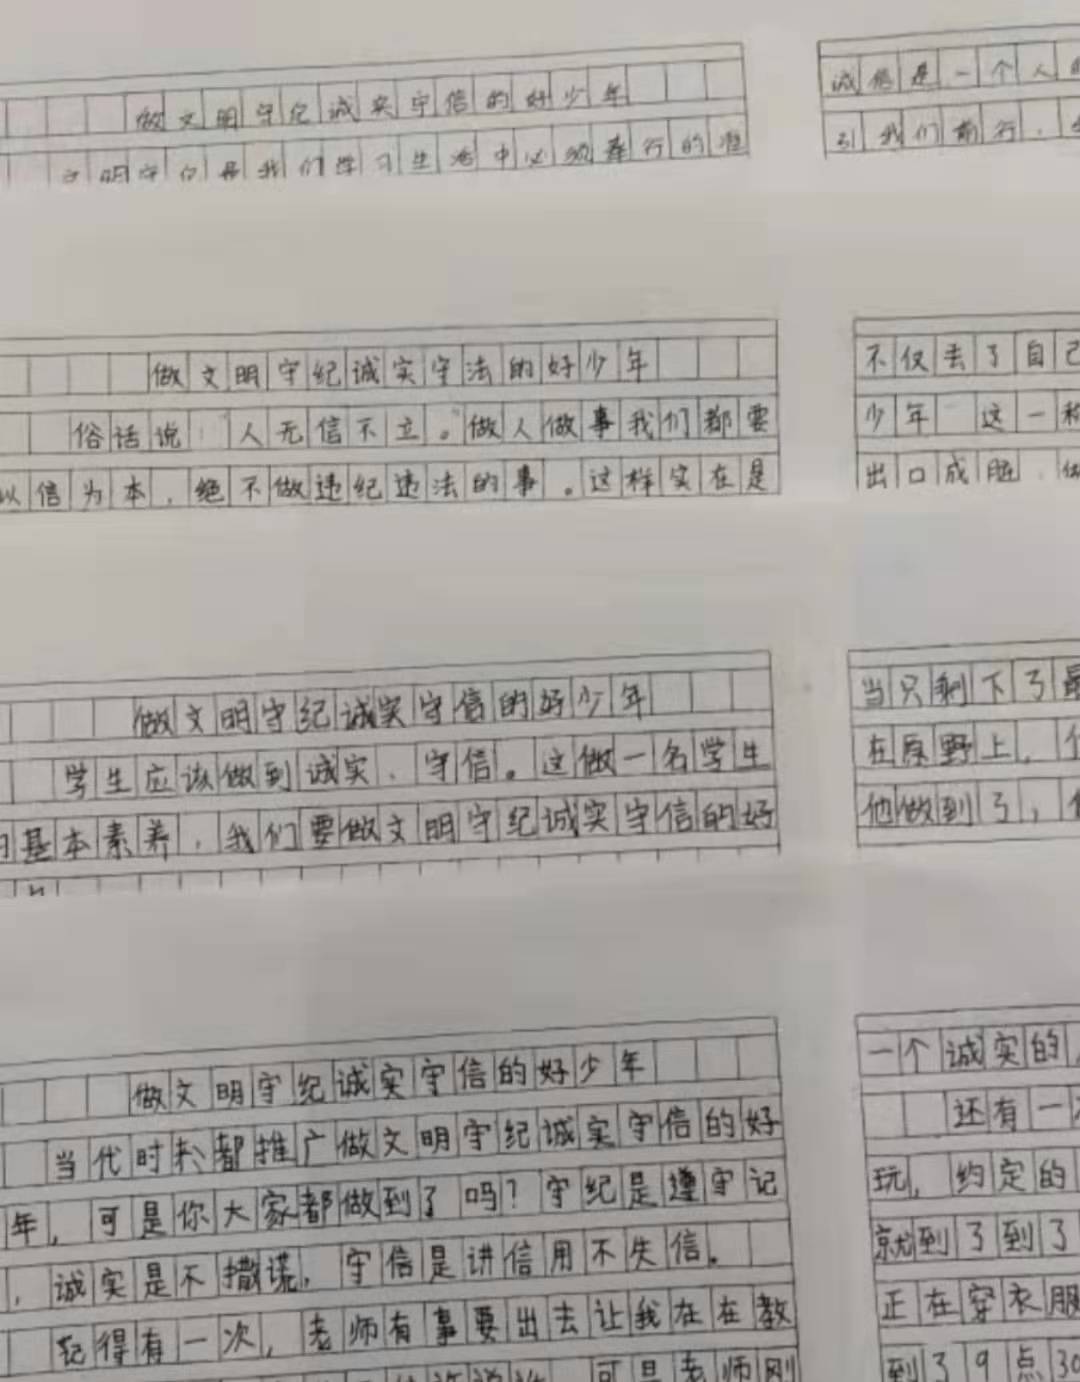 做文明守纪诚实守信的好少年
文明守纪是我们学习生活中必须奉行的准
诚信是一个人
引我们前行，
做文明守纪诚实守法的好少年
俗话说“人无信不立。”做人做事我们都要
以信为本，绝不做违纪违法的事。这样实在是
不仅丢了自己
少年 这一称
出口成脏，做
做文明守纪诚实守信的好少年
学生应该做到诚实、守信。这做一名学生
基本素养，我们要做文明守纪诚实守信的好
当只剩下了最
在原野上，
他做到了，
做文明守纪诚实守信的好少年
当代时 都推广做文明守纪诚实守信的好
年，可是你大家都做到了吗？守纪是遵守记
，诚实是不撒谎，守信是讲信用不失信。
纪得有一次，老师有事要出去让我在在教
可是老师刚
一个诚实的
还有一次
玩，约定的
就到了到了
正在穿衣服
到了9点30